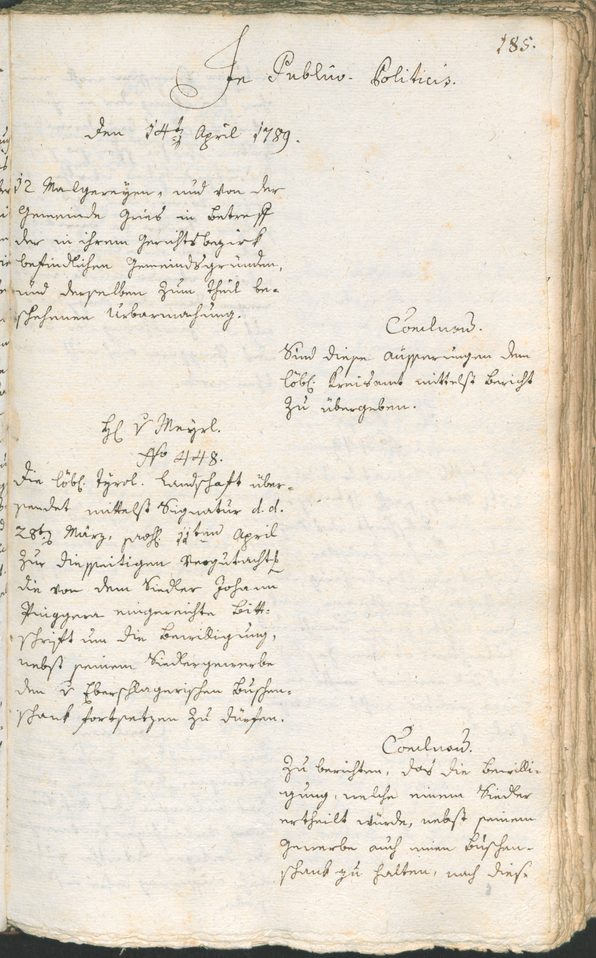 185.
In Publico-Politicis.
den 14t. April 1789.
12 Malgereyen, und von der
Gemeinde Gries in betreff
der in ihrem Gerichtsbezirk
befindlichen Gemeindsgründen,
und derselben zum theil be-
schehenen Urbarmachung.
Conclusu.
Sind diese äusserungen dem
löbl. Kreisamt mittelst Bericht
zu übergeben.
H. v Meyrl.
No 448.
Die löbl. tyrol. Landschaft über-
sendet mittelst Signatur d. d.
28t. März, 11ten April
zur diesseitigen
die von dem Siedler Johann
Pinggera eingereichte Bitt-
schrift um die Bewilligung,
nebst seinem Siedlergewerbe
den v Eberschlagerischen Buschen-
schank fortsetzen zu dürfen.
Conclusu.
Zu berichten, das die Bewilli-
gung, welche einem Siedler
ertheilt würde, nebst seinem
Gewerbe auch einen Buschen-
schank zu halten, nach diese